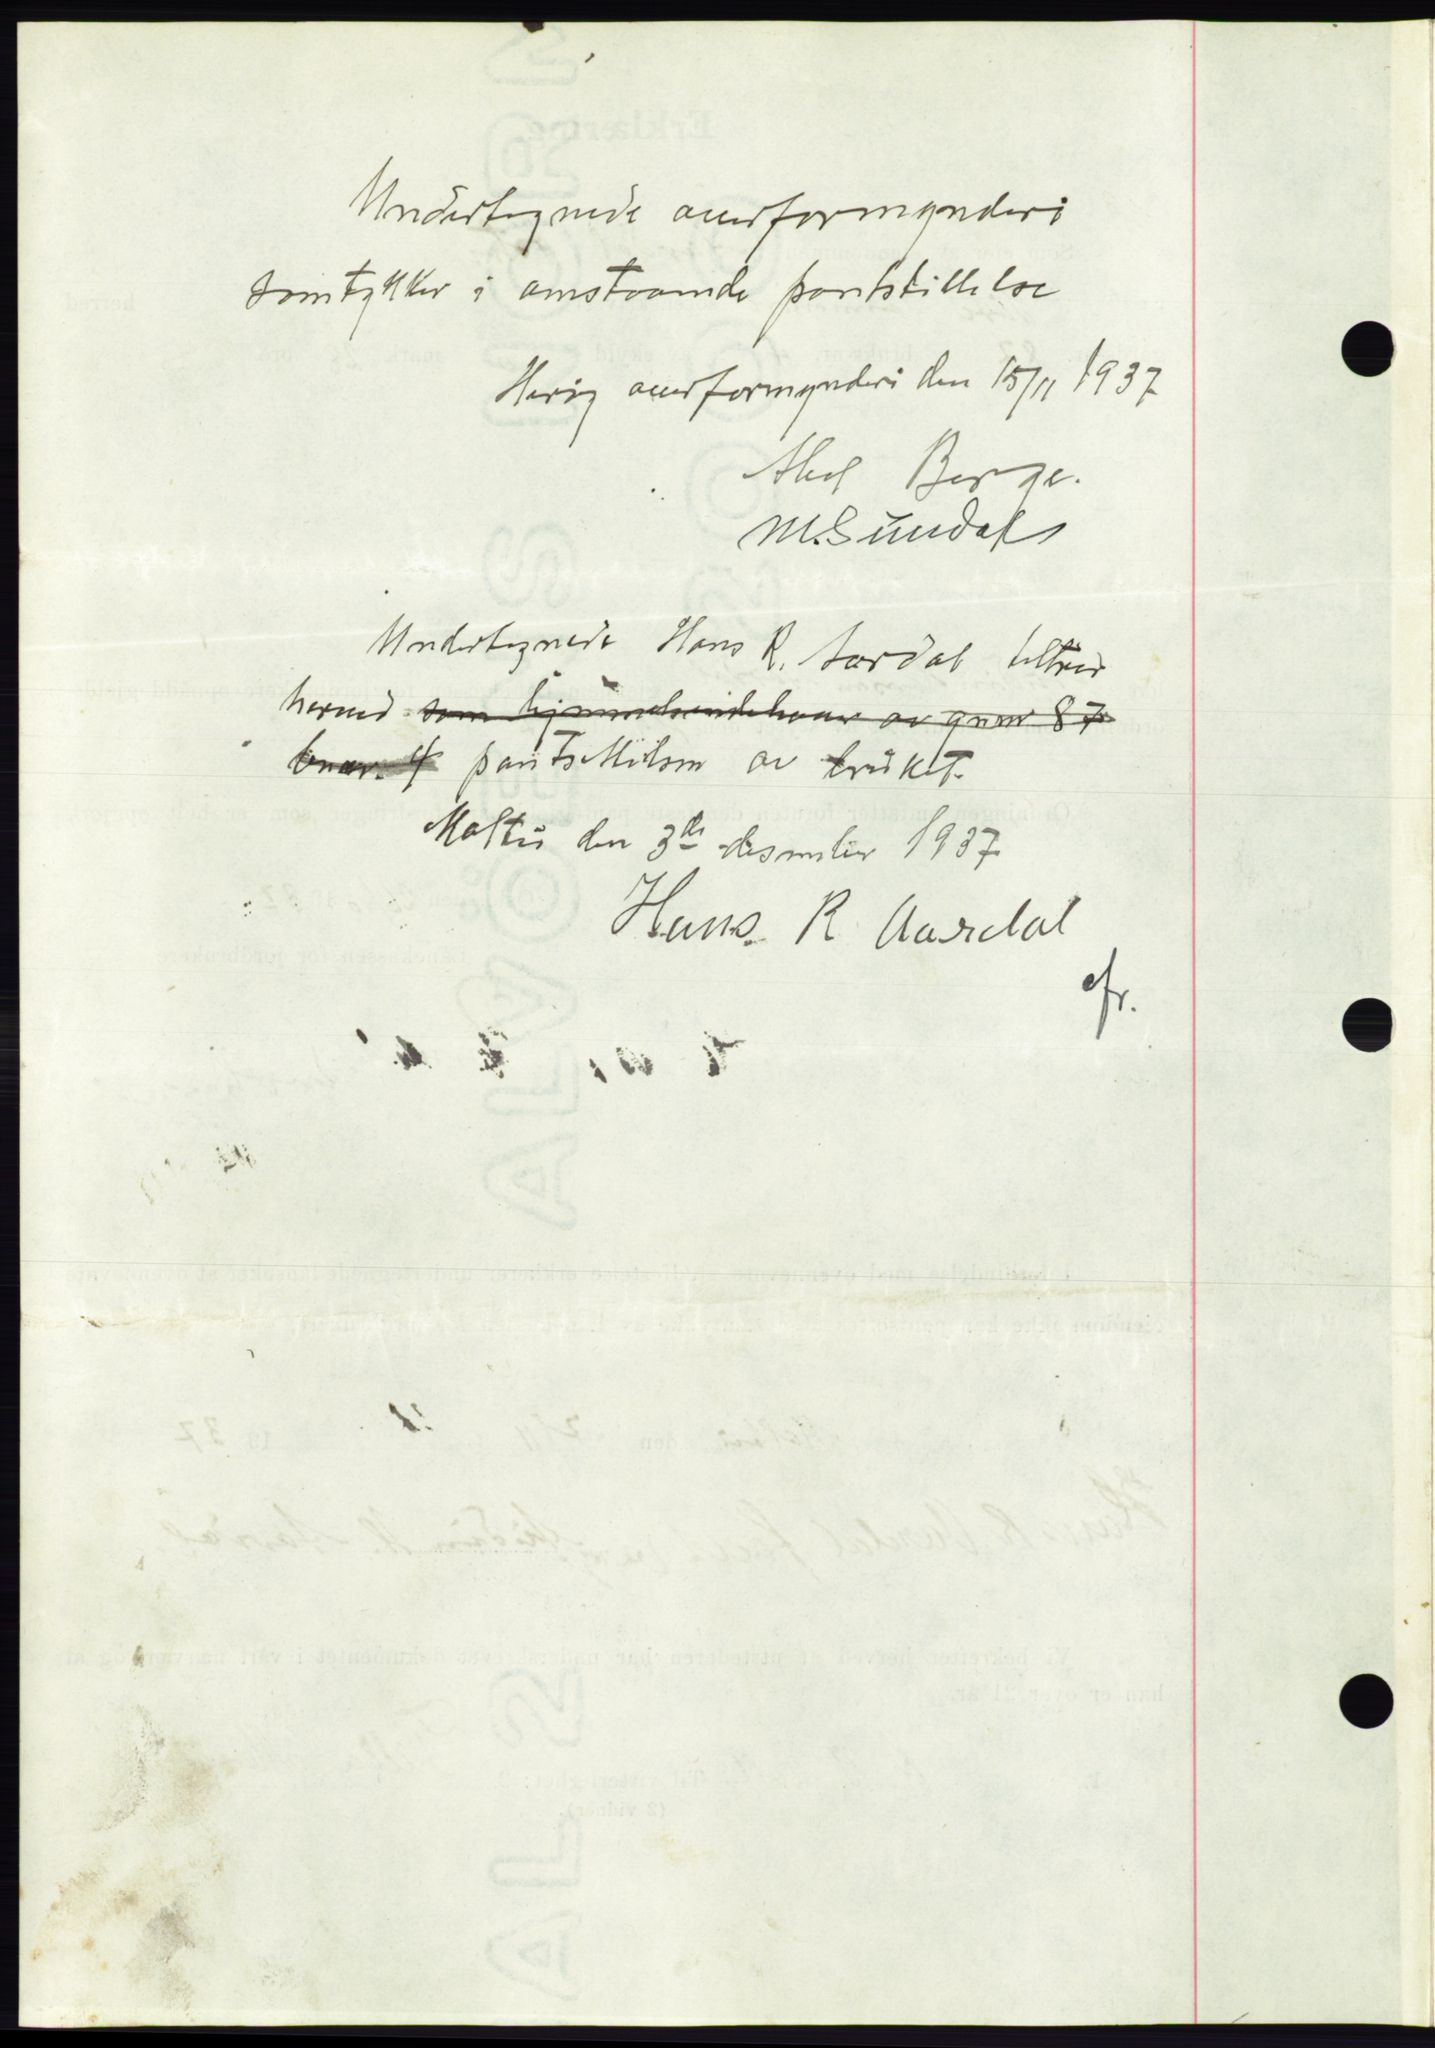 Undertegnede overformynderi
samtykker i omstaaende pantstillelse
Herøy overformynderi den 15/11 1937
Abel Berge.
M. Sundal
Undertegnede Hans R. Aardal tiltrer
herved som hjemmelsindehaver av gnr 87
bnr. 4 pantstillelsen av bruket.
Moltu den 3de desember 1937
Hans R Aardal